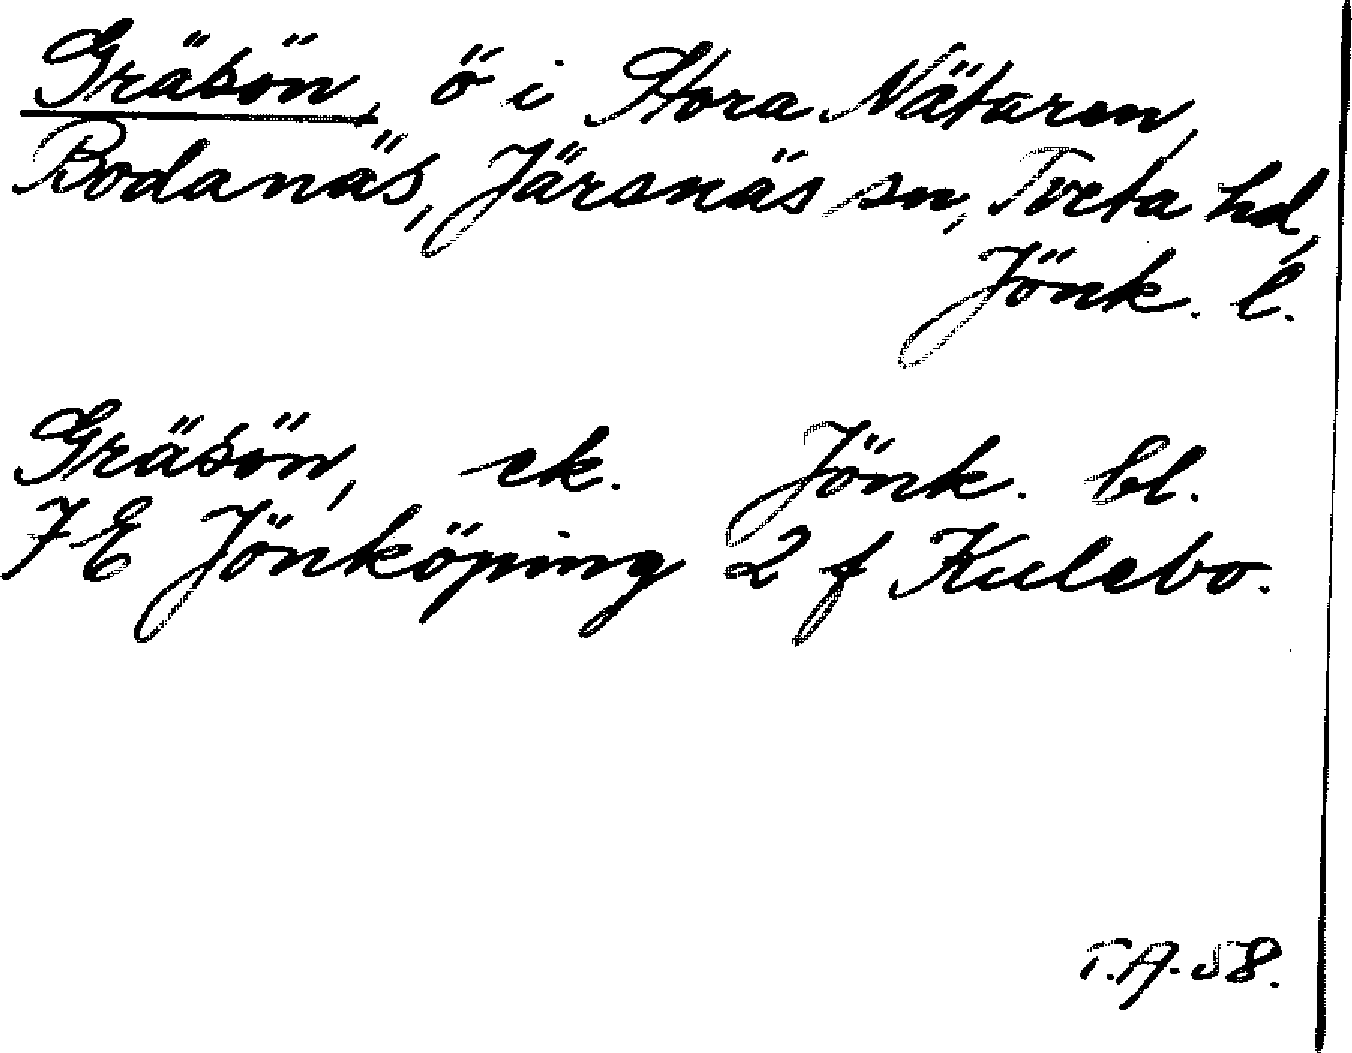 Gräsön, ö i Stora Nätaren,
Bodanäs, Järsnäs sn, Tveta hd,
Jönk. l.
Gräsön, ek. Jönk. bl.
7E Jönköping 2 f Kulebo.
T.A. 58.